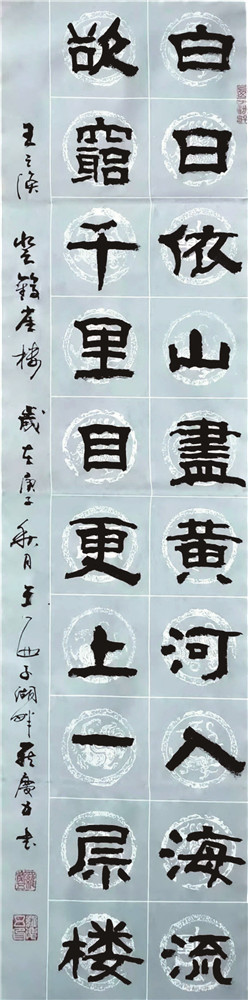 白日依山盡黄河入海流
欲窮千里目更上一层楼
王之涣 登鹳雀楼 歲在庚子秋月于西子湖畔